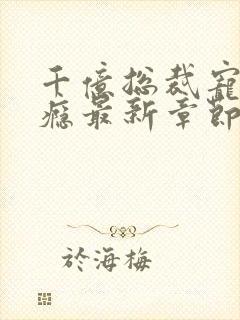 千億总裁寵
癮最新章節
於海梅